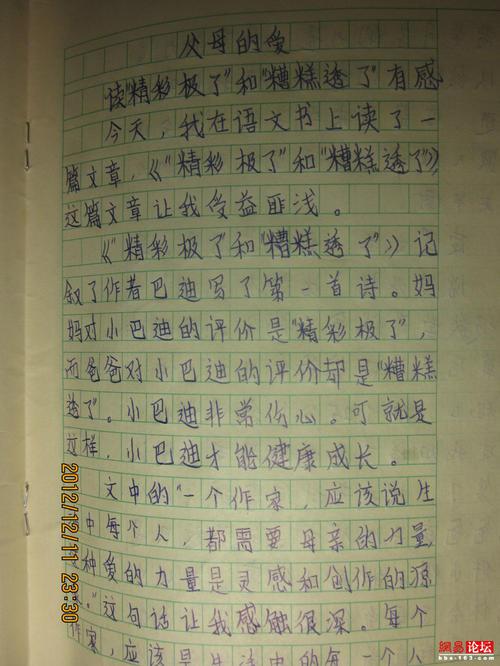 父母的爱
读"精彩极了"和"糟糕透了"有感
今天，我在语文书上读了一
篇文章，《"精彩极了"和"糟糕透了"》
这篇文章让我受益匪浅。
《"精彩极了和"糟糕透了"》记
叙了作者巴迪写了第一首诗。妈
妈对小巴迪的评价是"精彩极了"，
而爸爸对小巴迪的评价却是"糟糕
透了"。小巴迪非常伤心。可就是
这样，小巴迪才能健康成长。
文中的"一个作家，应该说生
中每个人，都需要母亲的力量
种爱的力量是灵感和创作的源
"这句话让我感触很深。每个
作家，应该是生活中的每一个人
2012/12/11 23:30
网易论坛
bbs.163.com